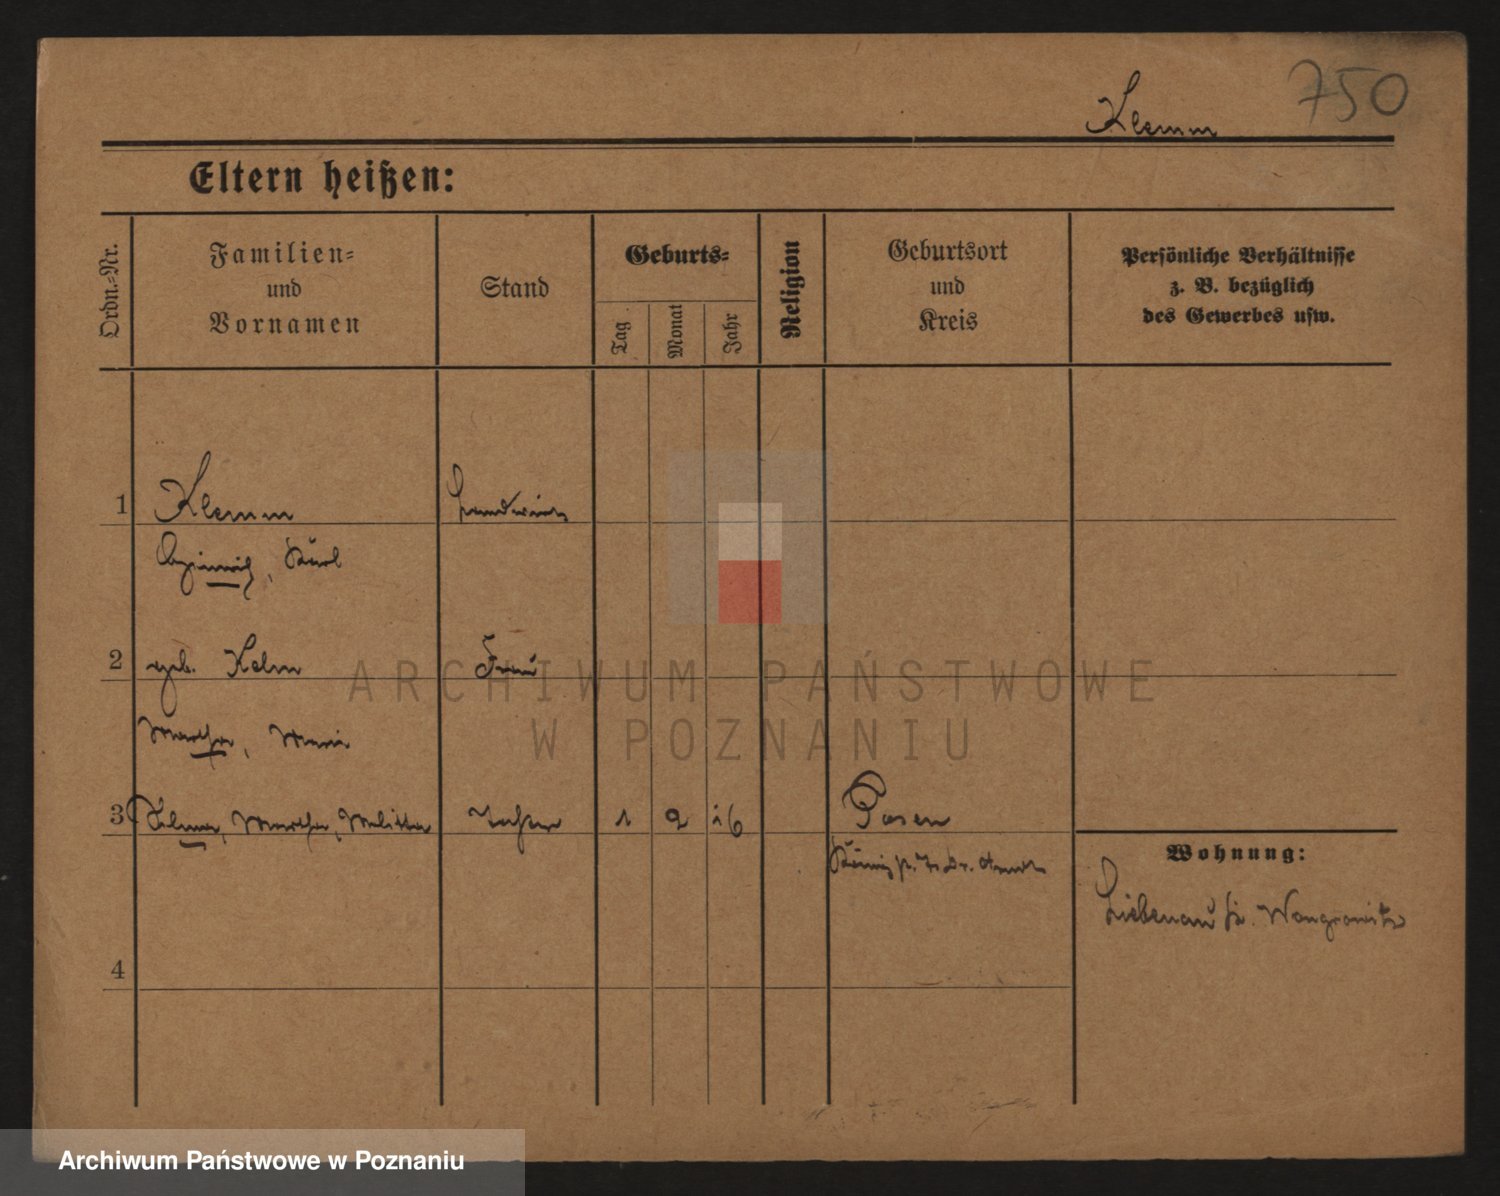 750
Klemm
Eltern heißen:
Ordn.-Nr.
Familien-
und
Vornamen
Stand
Geburts-
Tag
Monat
Jahr
Religion
Geburtsort
und
Kreis
Persönliche Verhältnisse
z. B. bezüglich
des Gewerbes usw.
1 Klemm Landwirt
Heinrich, Karl
2 geb. Kelm Frau
Martha, Marie
3 Martha, Melitta Tochter 1 2 16 Posen
Wohnung:
Liebenau Kr. Wongrowitz
4
ARCHIWUM PAŃSTWOWE
W POZNANIU
Archiwum Państwowe w Poznaniu